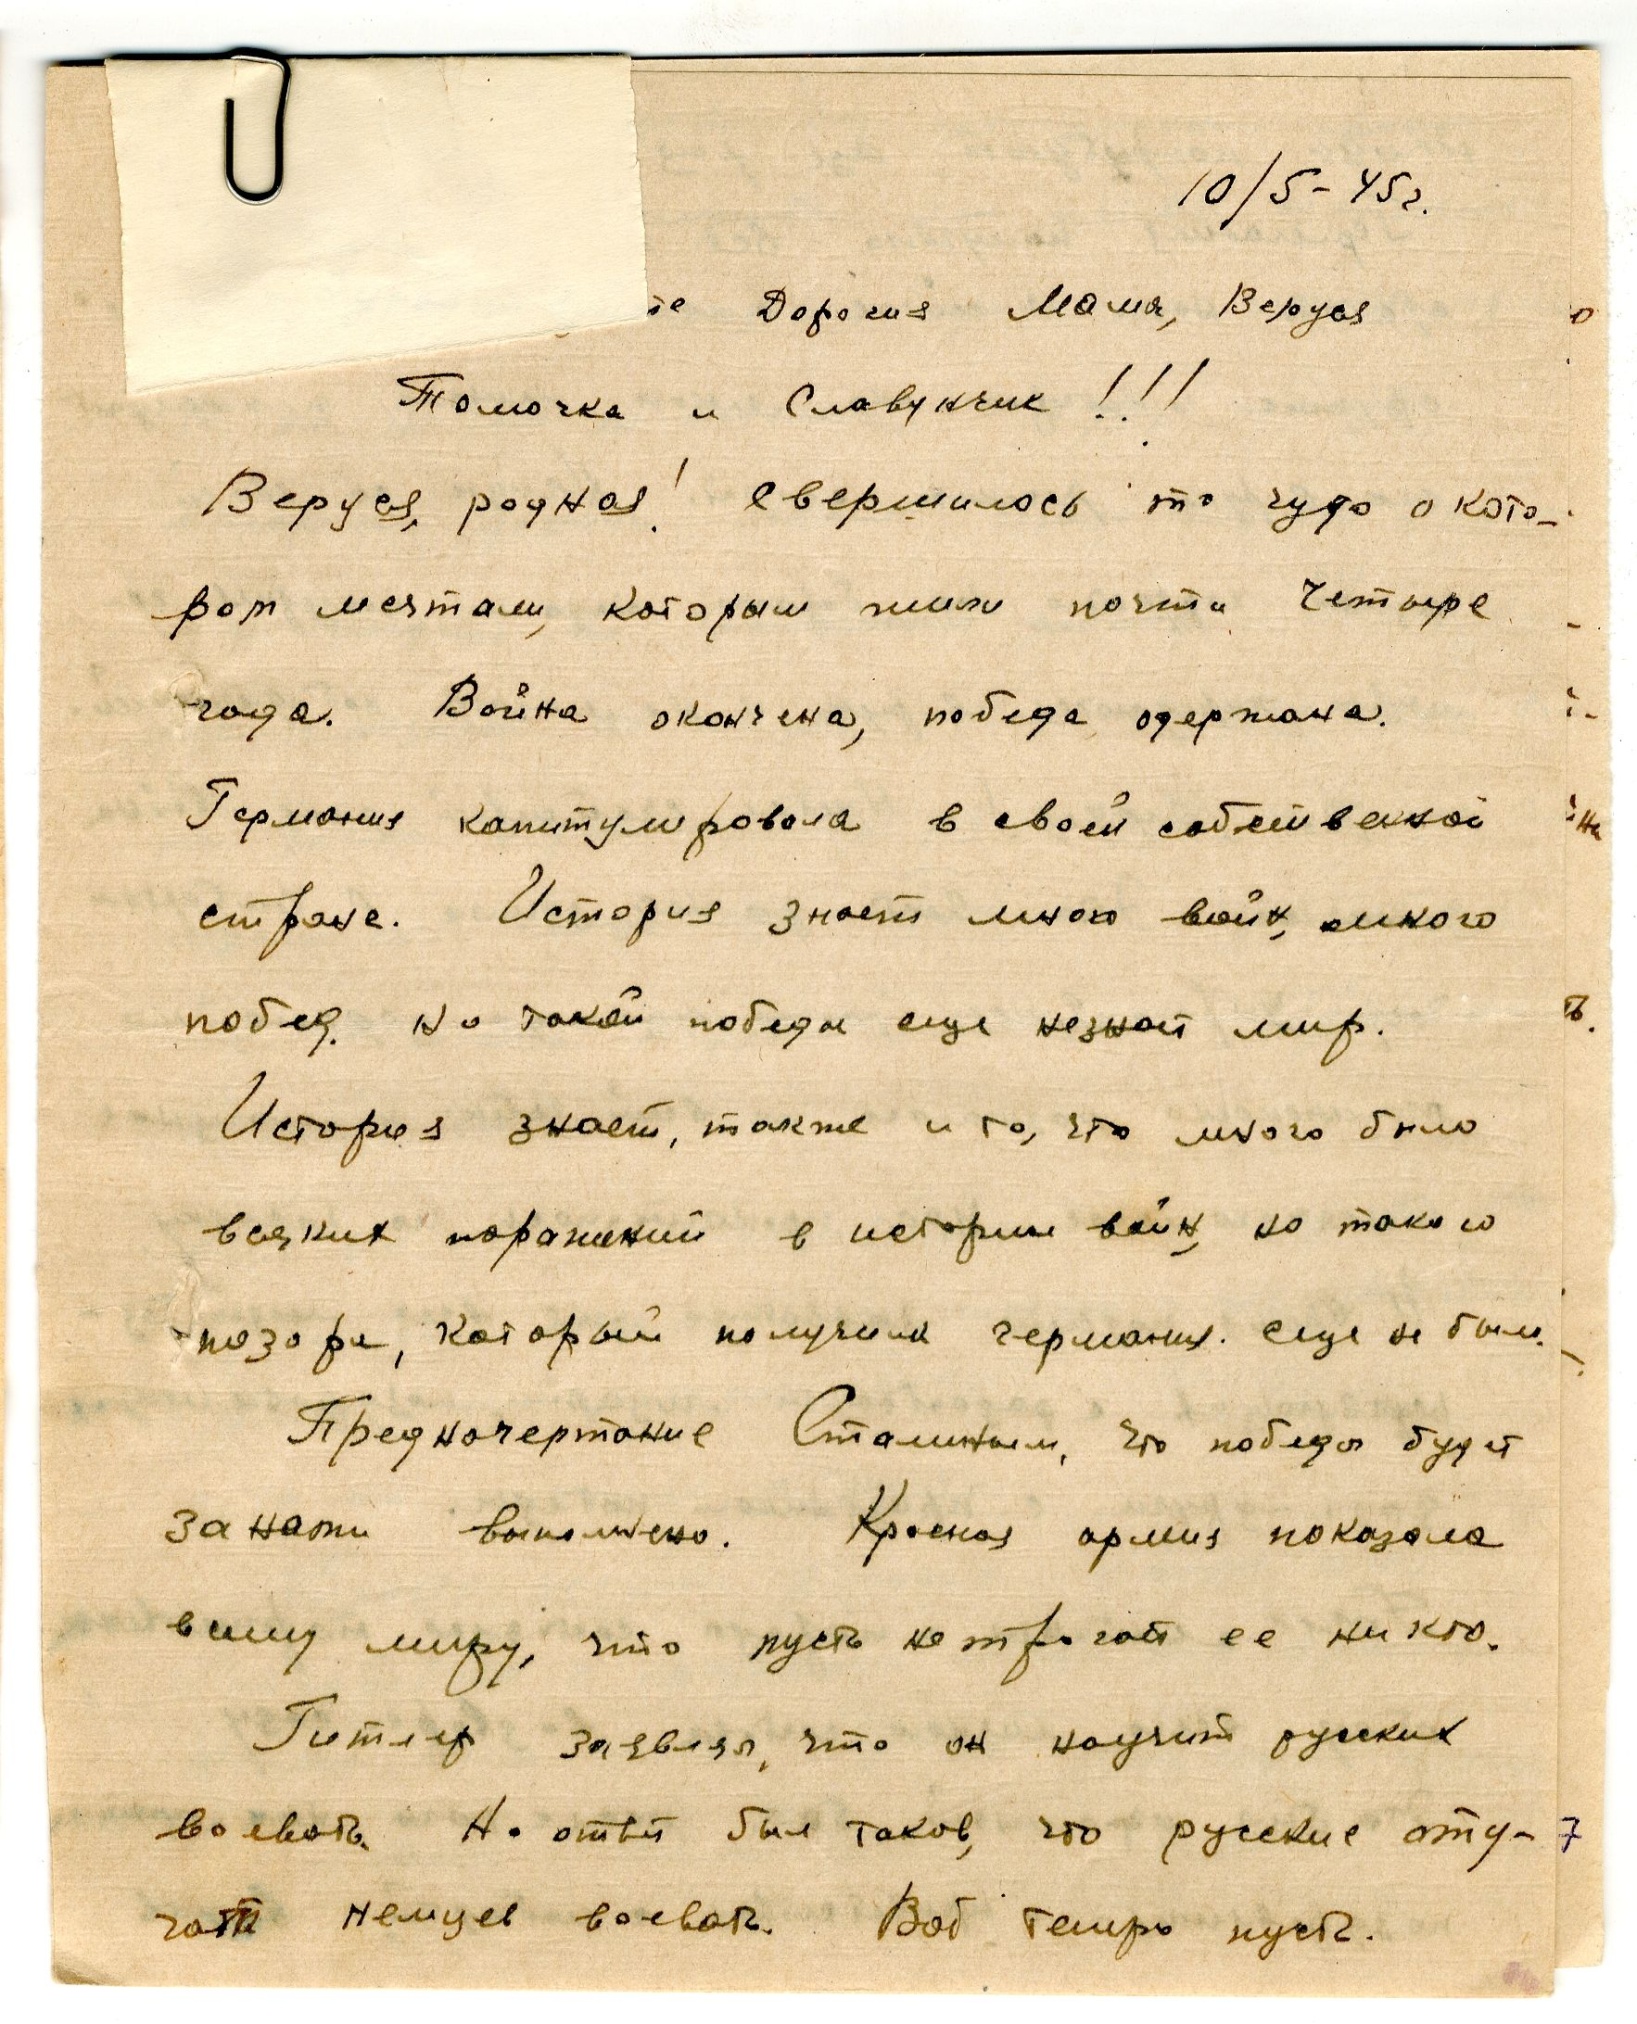 10/5-45г.
те Дорогия Мама, Веруся
Томочка и Славунчик!!!
Веруся, родная! Свершилось то чудо о кото-
ром мечтали, которым жили почти четыре
года. Война окончена, победа одержана.
Германия капитулировала в своей собственной
стране. История знает много войн, много
побед, но такой победы еще незнает мир.
История знает, также и то, что много было
всяких поражений в истории войн, но такого
позора, который получила германия. еще не было.
Предначертание Сталиным, что победа будет
за нами выполнено. Красная армия показала
всему миру, что пусть нетрогает ее никто.
Гитлер заявлял, что он научит русских
воевать. Но ответ был таков, что русские оту-
чат немцев воевать. Вот теперь пусть.